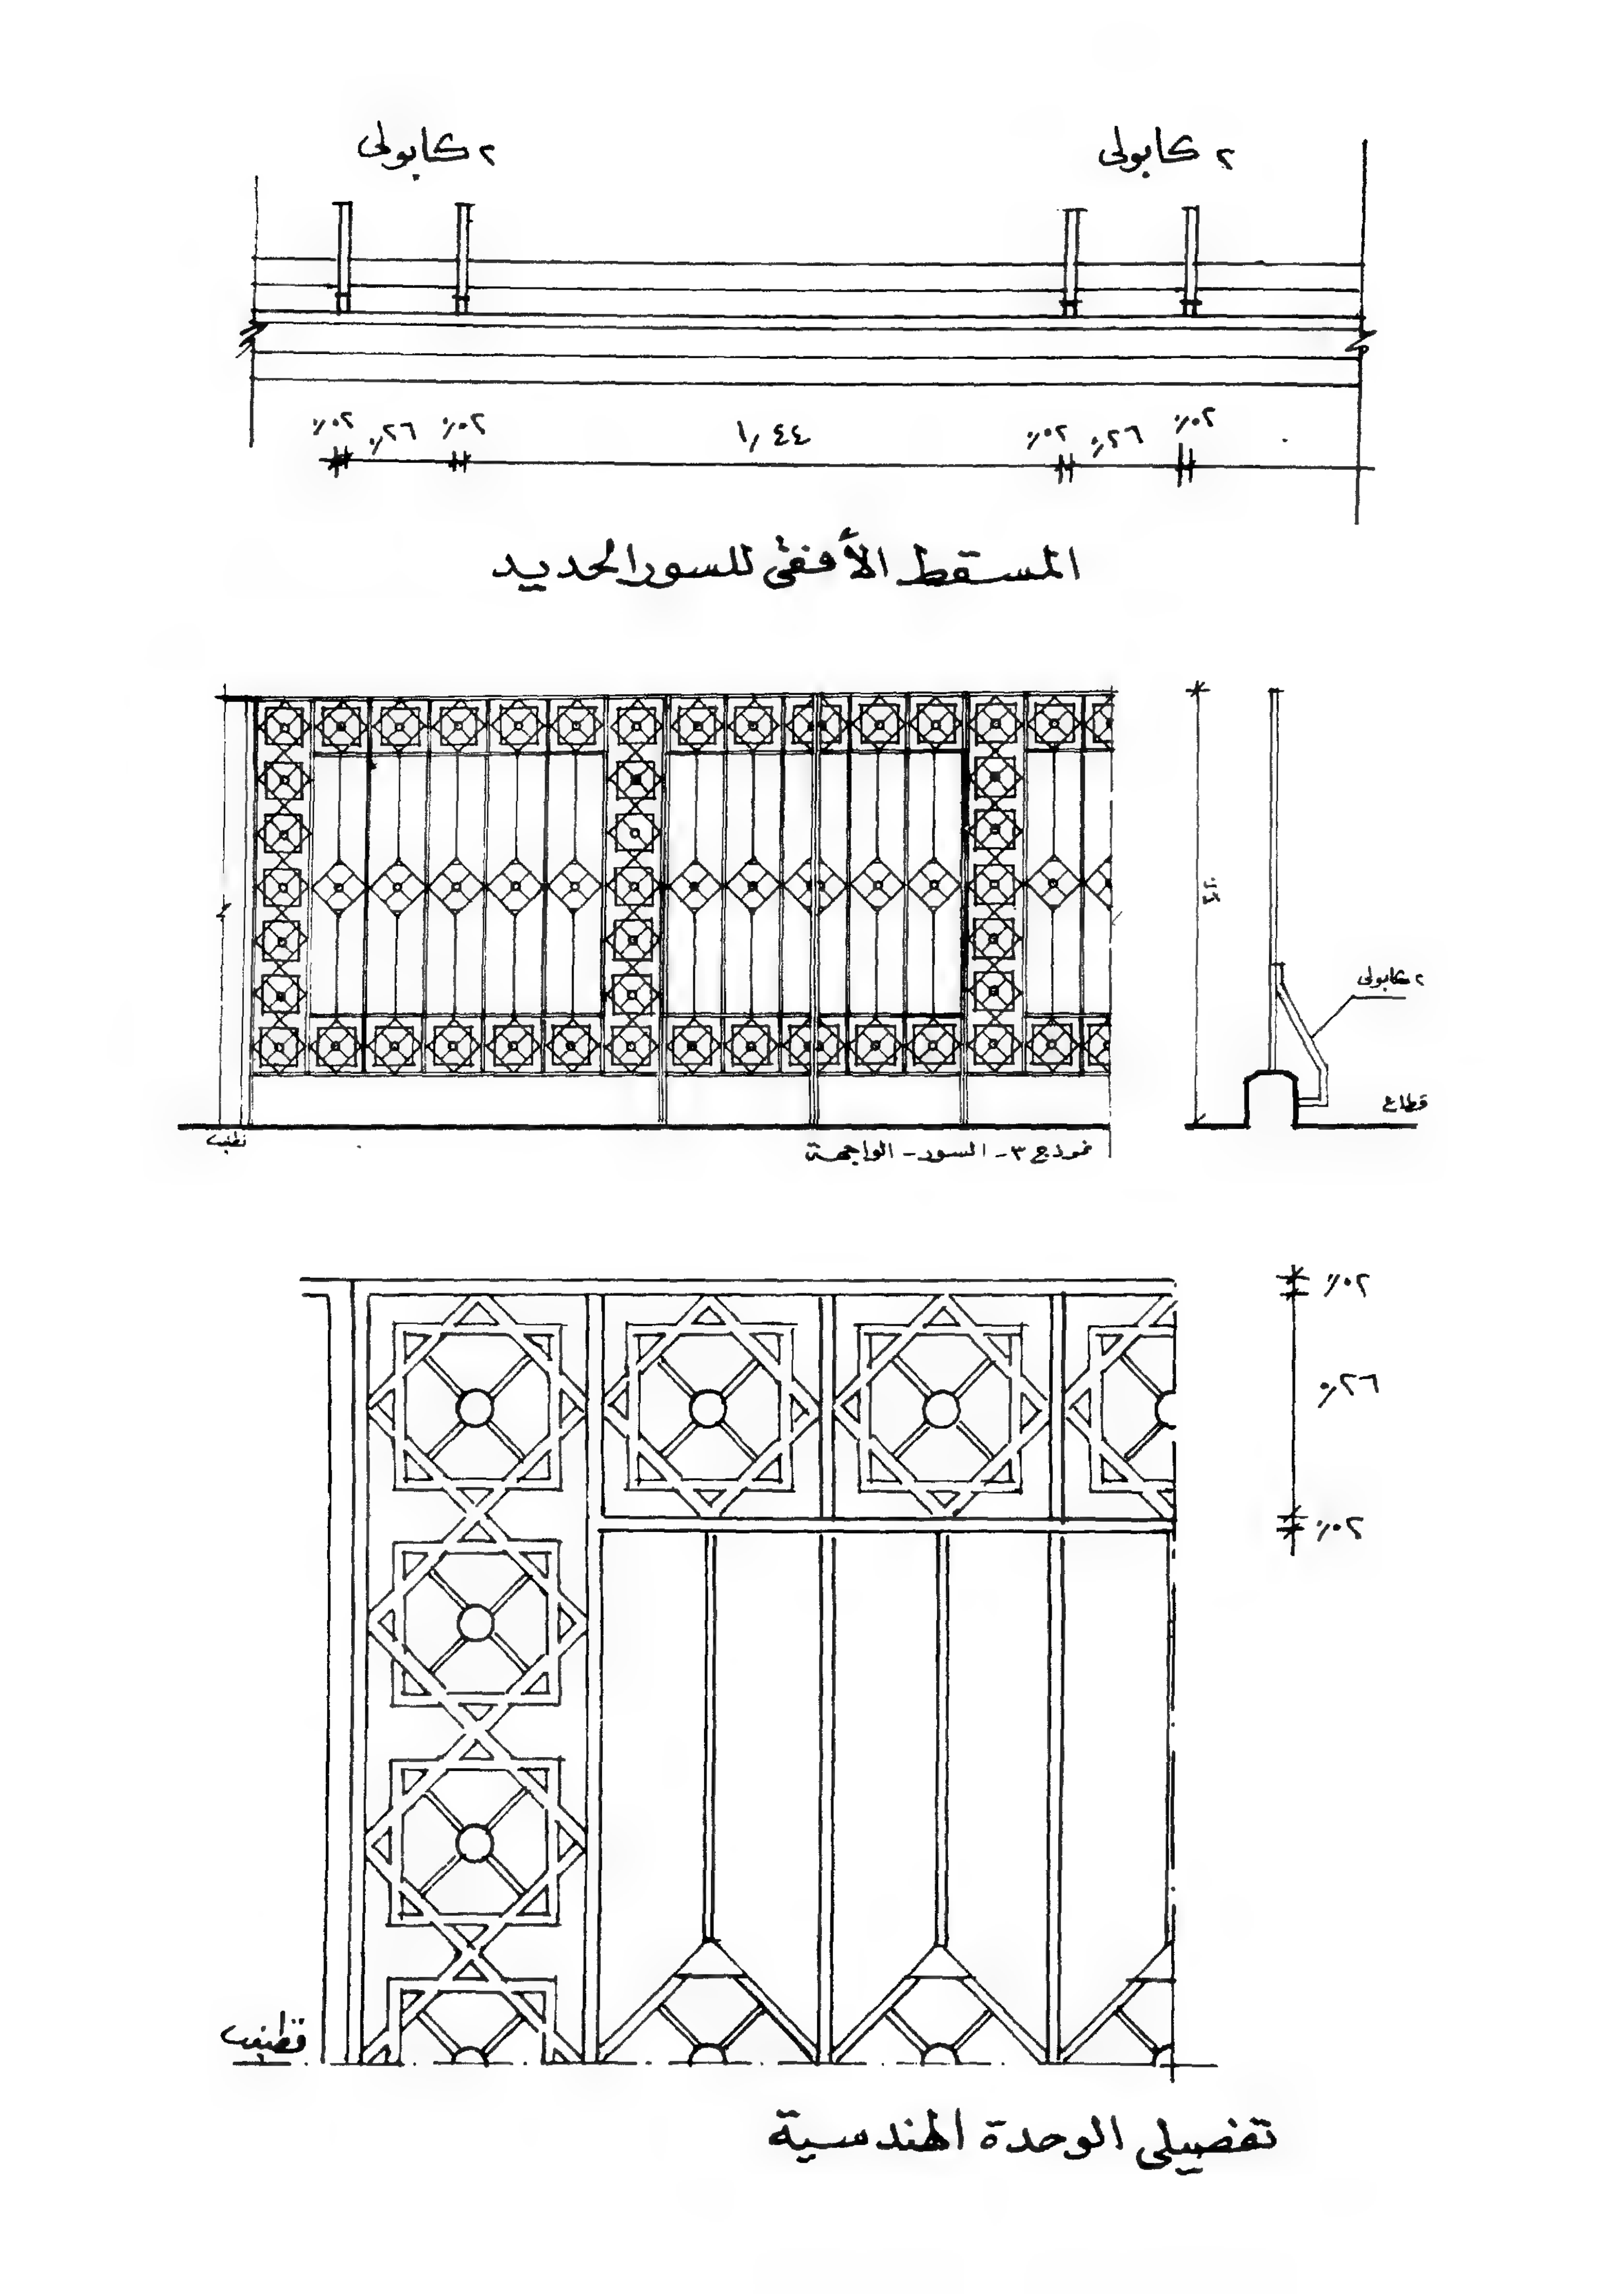 ٢ كابولى
٢ كابولى
٠٢٪ ٠٫٢٦ ٠٢٪ ١٫٤٤ ٠٢٪ ٠٫٢٦ ٠٢٪
المسقط الأفقى للسور الحديد
٢ كابولى
قطاع
نموذج ٣ - السور - الواجهة
٠٢٪
٠٫٢٦
٠٢٪
تفصيلى الوحدة الهندسية